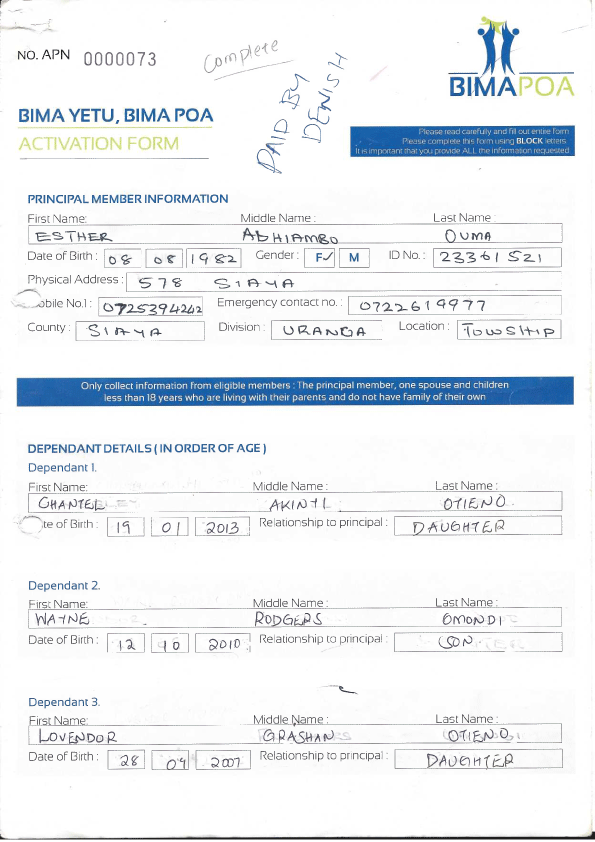 NO. APN 0000073
Complete
PAID BY
DENISH
BIMAPOA
BIMA YETU, BIMA POA
ACTIVATION FORM
Please read carefully and fill out entire form
Please complete this form using BLOCK letters.
It is important that you provide ALL the information requested
PRINCIPAL MEMBER INFORMATION
First Name: Middle Name : Last Name :
ESTHER ADHIAMBO OUMA
Date of Birth : 08 08 1982 Gender : F✓ M ID No. : 23361521
Physical Address : 578 SIAYA
obile No.1 : 0725394242 Emergency contact no. : 0722619977
County : SIAYA Division : URANGA Location : TOWSHIP
Only collect information from eligible members : The principal member, one spouse and children
less than 18 years who are living with their parents and do not have family of their own
DEPENDANT DETAILS ( IN ORDER OF AGE )
Dependant 1.
First Name: Middle Name : Last Name :
CHANTEL OTIENO
te of Birth : 19 01 2013 Relationship to principal : DAUGHTER
Dependant 2.
First Name: Middle Name : Last Name :
WAYNE RODGERS OMONDI
Date of Birth : 12 10 2010 Relationship to principal : SON
Dependant 3.
First Name: Middle Name : Last Name :
LOVENDOR GRASHAN OTIENO
Date of Birth : 28 09 2007 Relationship to principal : DAUGHTER